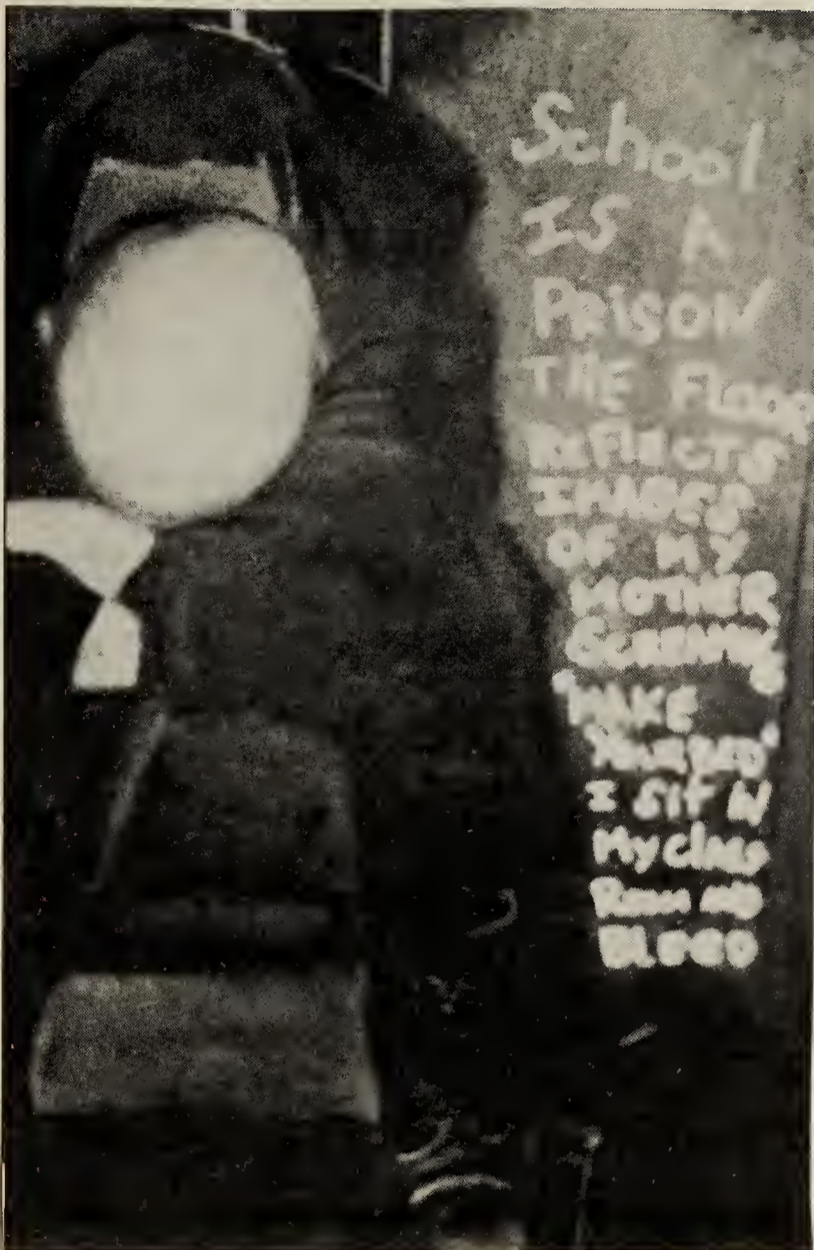 School
IS A
PRiSON
THE FLOOR
REFLECTS
IMAGES
OF MY
MOTHER
SCREAMING
"WAKE
I SiT IN
My class
Room AND
BLEED